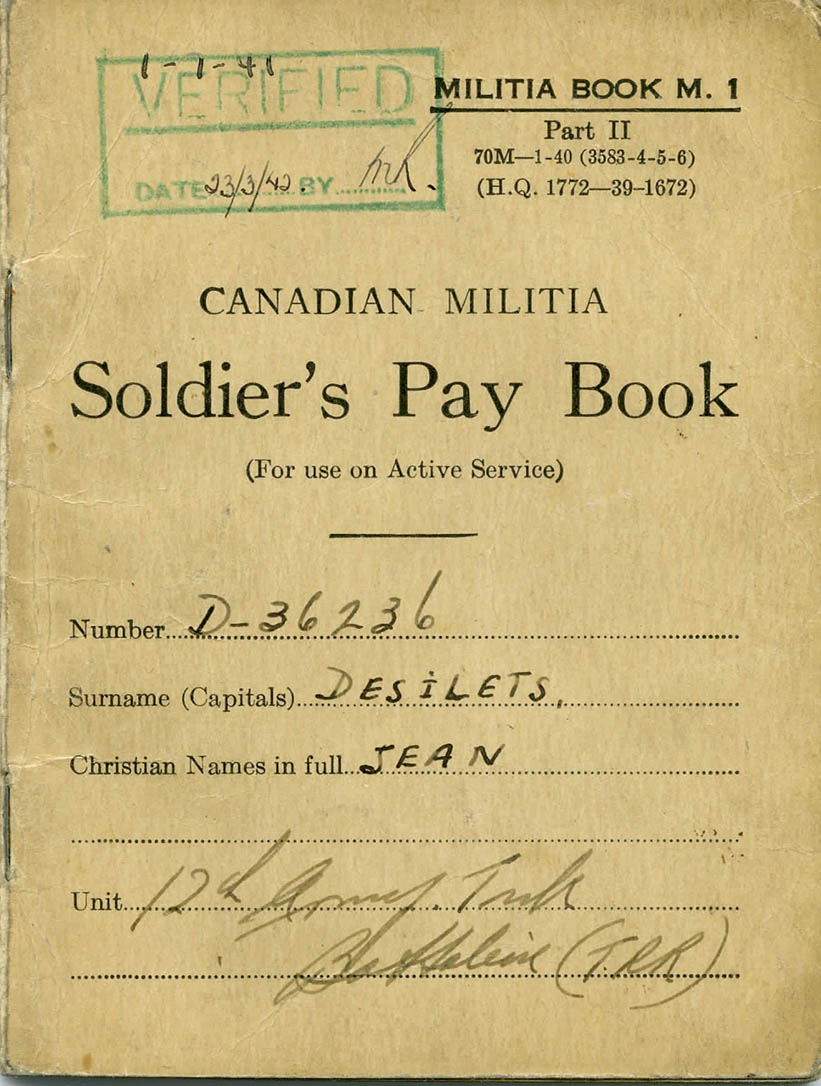 1-1-41
VERIFIED
DATE 23/3/42. BY
MILITIA BOOK M. 1
Part II
70M—1-40 (3583-4-5-6)
(H.Q. 1772—39-1672)
CANADIAN MILITIA
Soldier's Pay Book
(For use on Active Service)
Number D-36236
Surname (Capitals) DESILETS,
Christian Names in full JEAN
Unit 12th Army. Tank
Battalion (T.R.R)